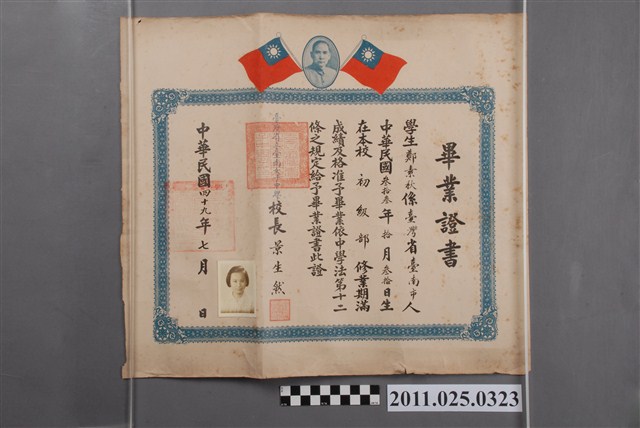 畢業證書
學生鄭素秋係臺灣省臺南市人
中華民國叁拾叁年拾月叁拾日生
在本校初級部修業期滿
成績及格准予畢業依中學法第十二
條之規定給予畢業證書此證
校長景生然
中華民國四十九年七月日
2011.025.0323